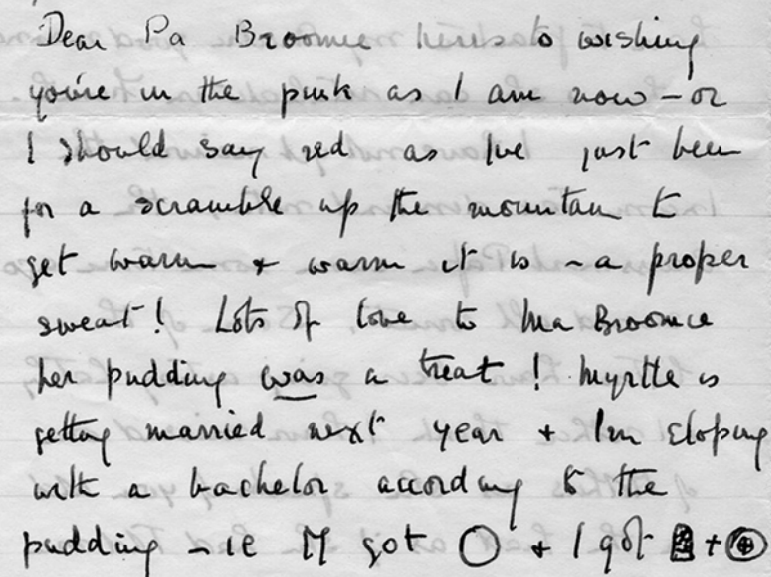 Dear Pa Broomie here's to wishing
you're in the pink as I am now – or
I should say red as I've just been
for a scramble up the mountain to
get warm & warm it is – a proper
sweat! Lots of love to Ma Broomie
her pudding was a treat! Myrtle is
getting married next year & I'm eloping
with a bachelor according to the
pudding – ie M got & I got +